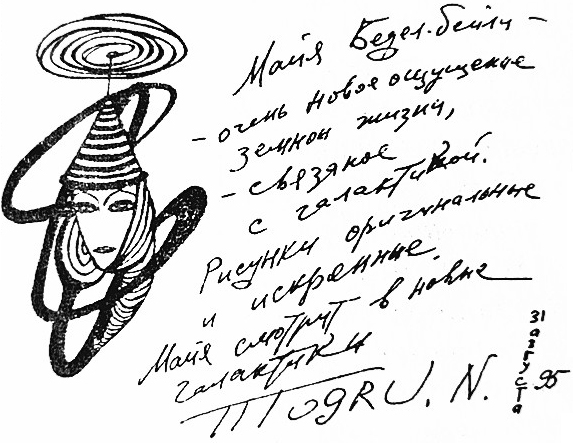 Майя Бедел-бейли –
– очень новое ощущение
земной жизни,
– связаное
с галактикой.
Рисунки оригинальные
и искренние.
Майя смотрит в новые
галактики
TogRU. N.
31
августа
95